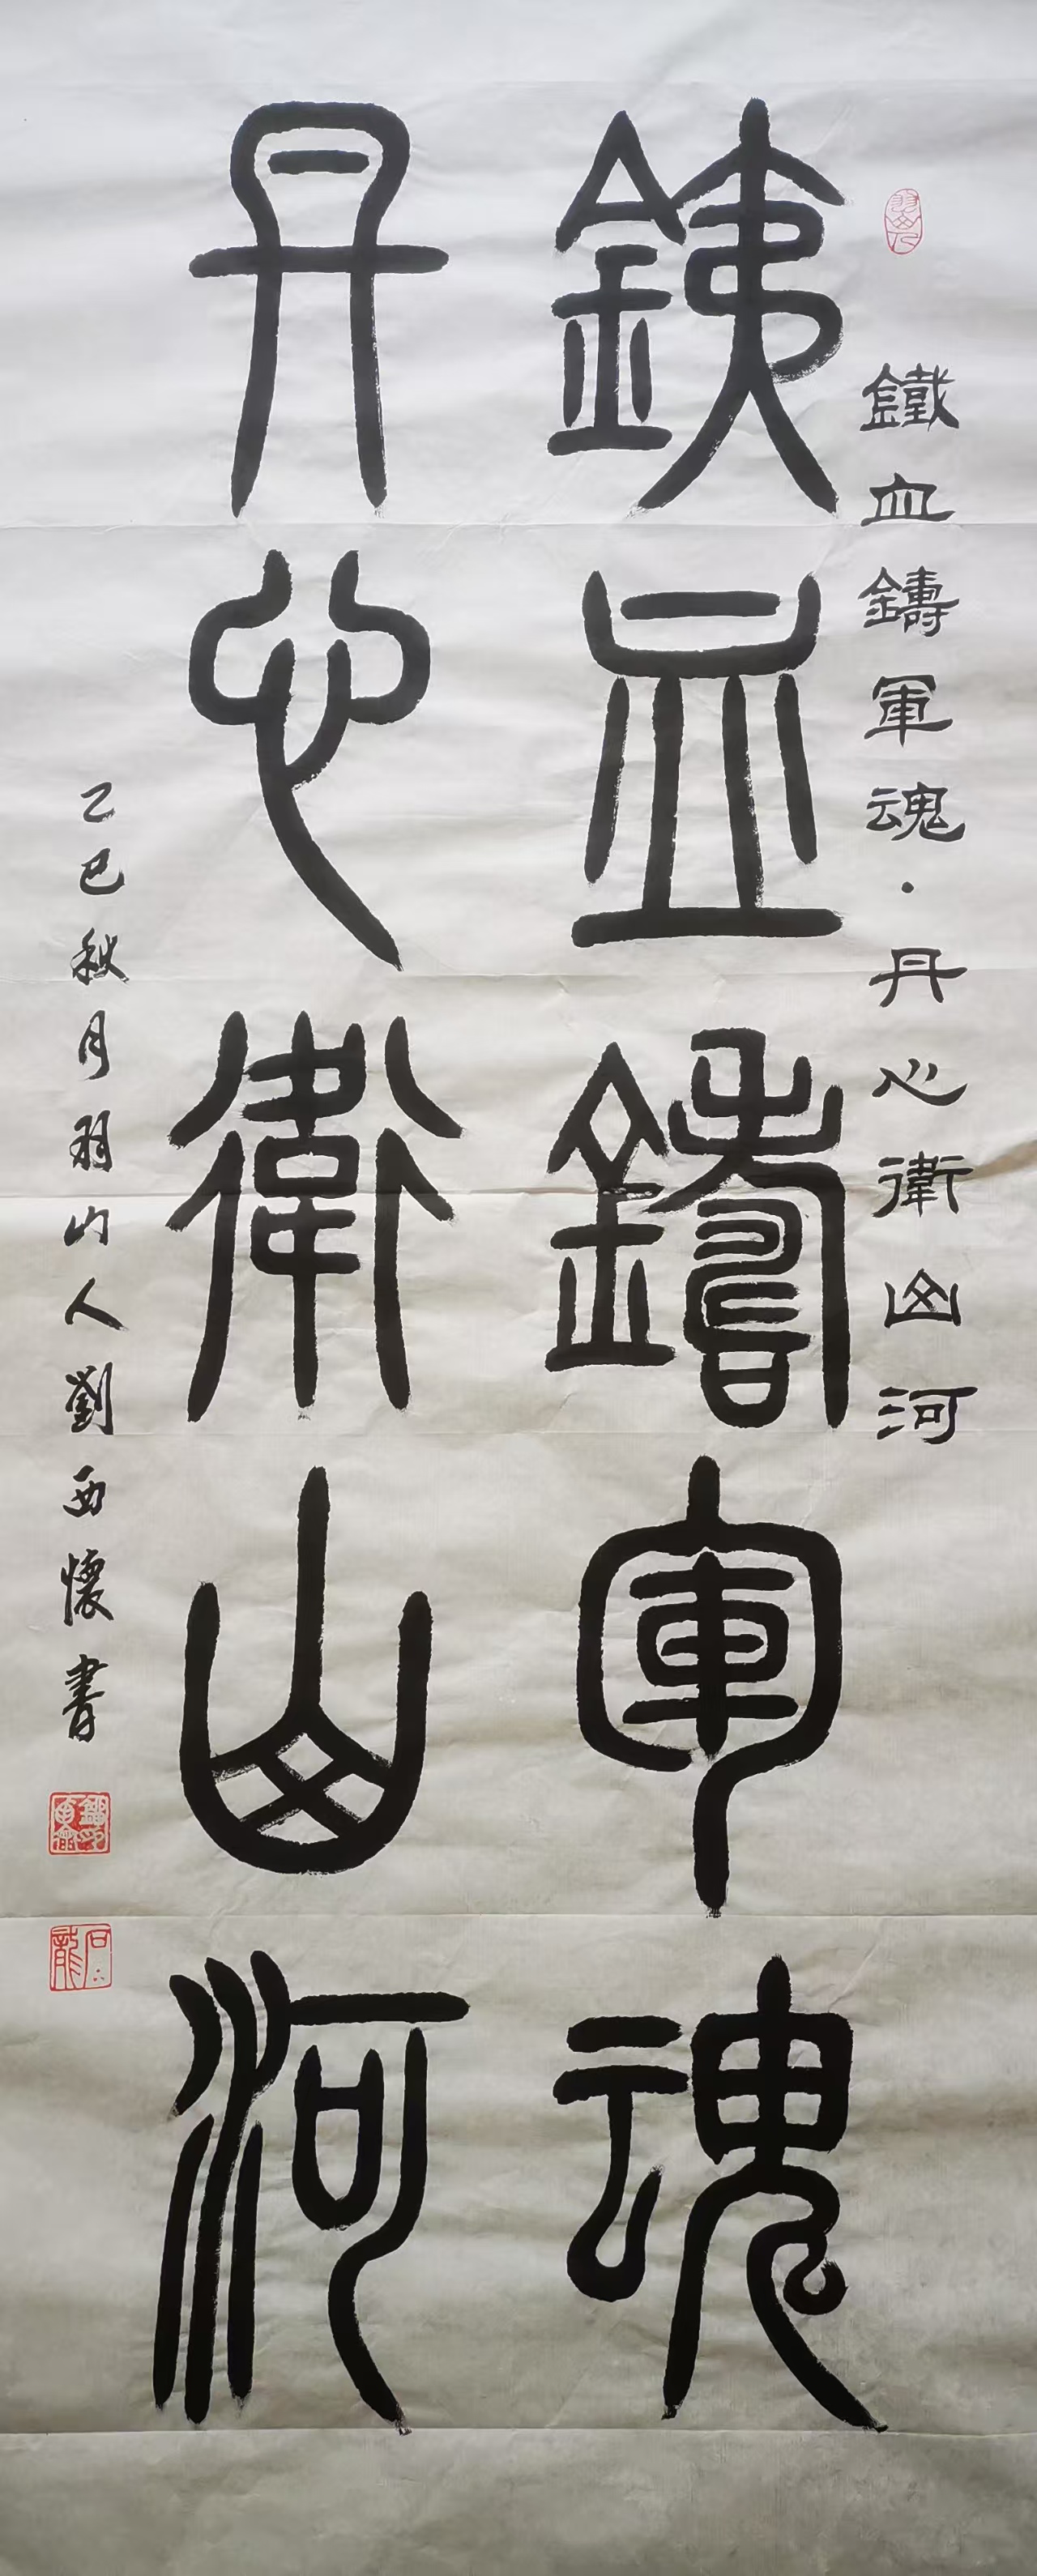 羽山人
鐵血鑄軍魂·丹心衛山河
銕血鑄軍魂
丹心衛山河
乙巳秋月羽山人劉西懷書